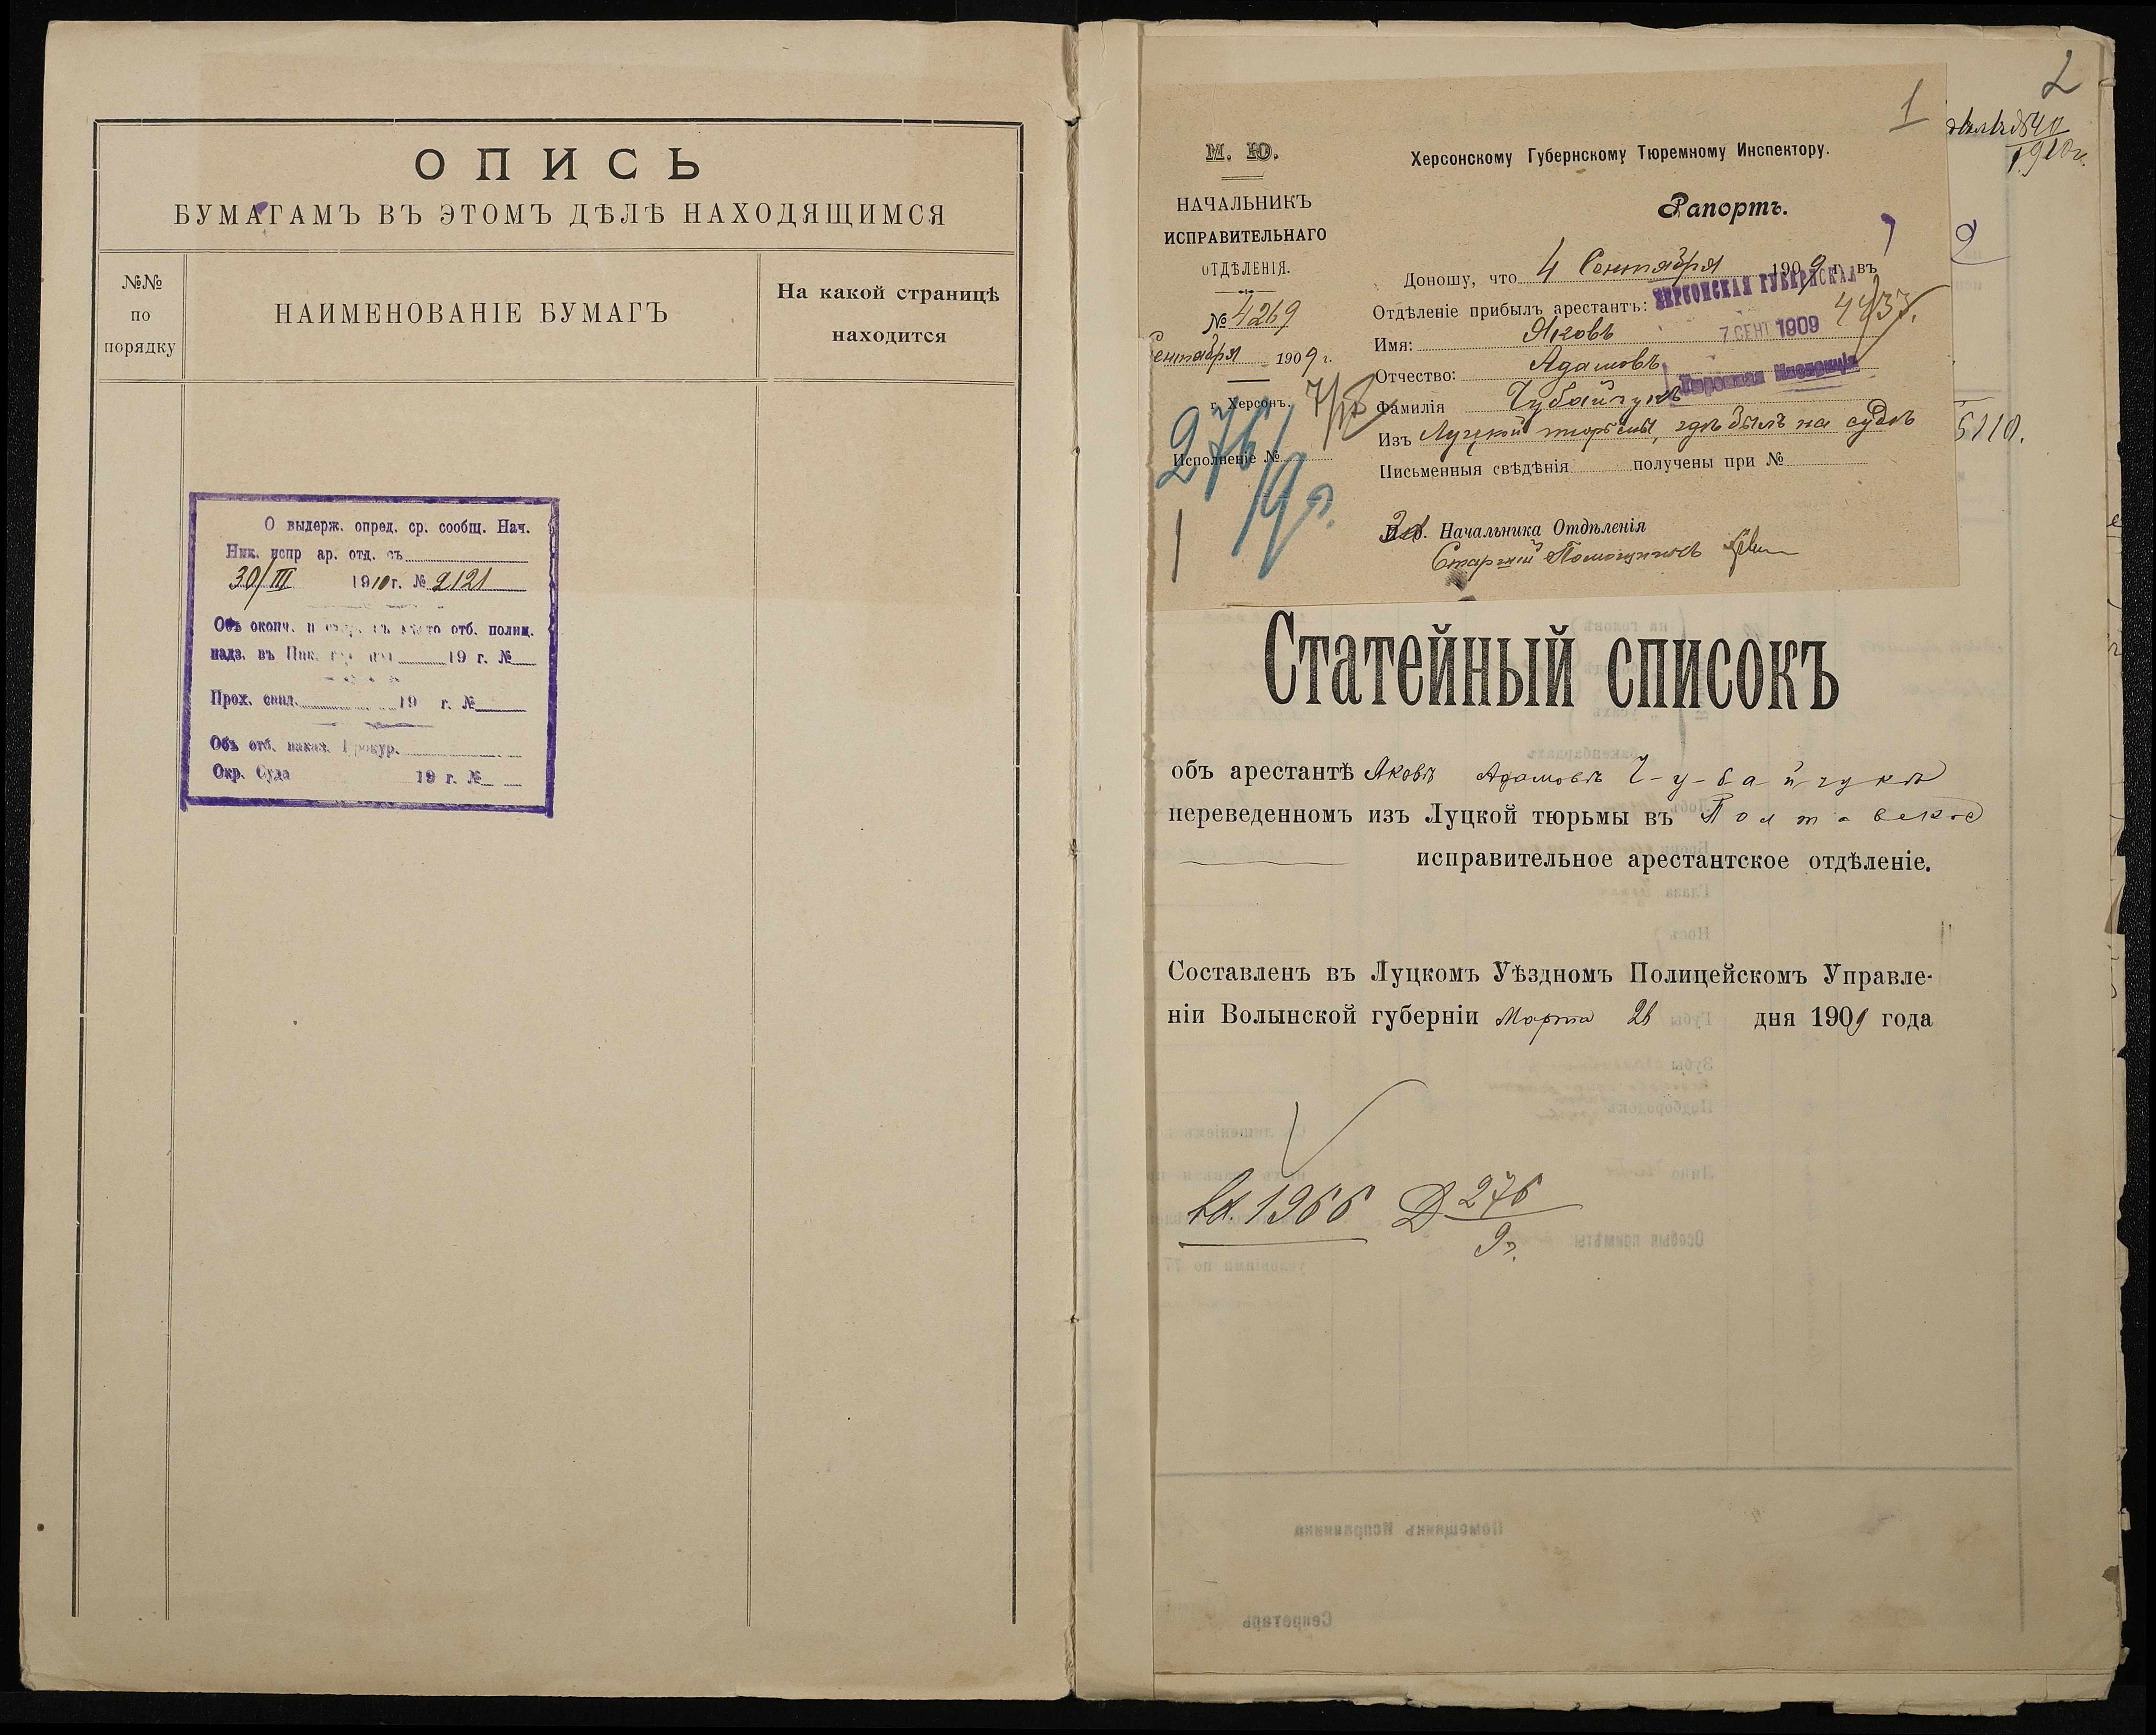 ОПИСЬ
БУМАГАМЪ ВЪ ЭТОМЪ ДѢЛѢ НАХОДЯЩИМСЯ
№№
по
порядку
НАИМЕНОВАНІЕ БУМАГЪ
На какой страницѣ
находится
О выдерж. опред. ср. сообщ. Нач.
Ник. испр ар. отд. съ
30/III 1910 г. № 2121
Объ оконч. отб. полиц.
надз. въ Ник. 19 г. №
Прох. свид. 19 г. №
Объ отб. наказ. Прокур.
Окр. Суда 19 г. №
2
1
М. Ю.
НАЧАЛЬНИКЪ
ИСПРАВИТЕЛЬНАГО
ОТДѢЛЕНІЯ.
№ 4269
Сентября 1909 г.
г. Херсонъ.
Исполненіе №
276/9 г.
Херсонскому Губернскому Тюремному Инспектору.
Рапортъ.
Доношу, что 4 Сентября 1909 г. въ
Отдѣленіе прибылъ арестантъ:
Имя: Яковъ
Отчество: Адамовъ
Фамилія Чубайчукъ
Изъ Луцкой тюрьмы, гдѣ былъ на судѣ
Письменныя свѣдѣнія получены при №
Начальника Отдѣленія
Старшій Помощникъ
ХЕРСОНСКАЯ ГУБЕРНСКАЯ
7 СЕНТ 1909
Тюремная Инспекція
2
5110.
Статейный списокъ
объ арестантѣ Яковѣ Адамовѣ Ч-у-байчукѣ
переведенномъ изъ Луцкой тюрьмы въ Полтавское
исправительное арестантское отдѣленіе.
Составленъ въ Луцкомъ Уѣздномъ Полицейскомъ Управле-
ніи Волынской губерніи Марта 26 дня 1909 года
1966 Д 276
9 г.